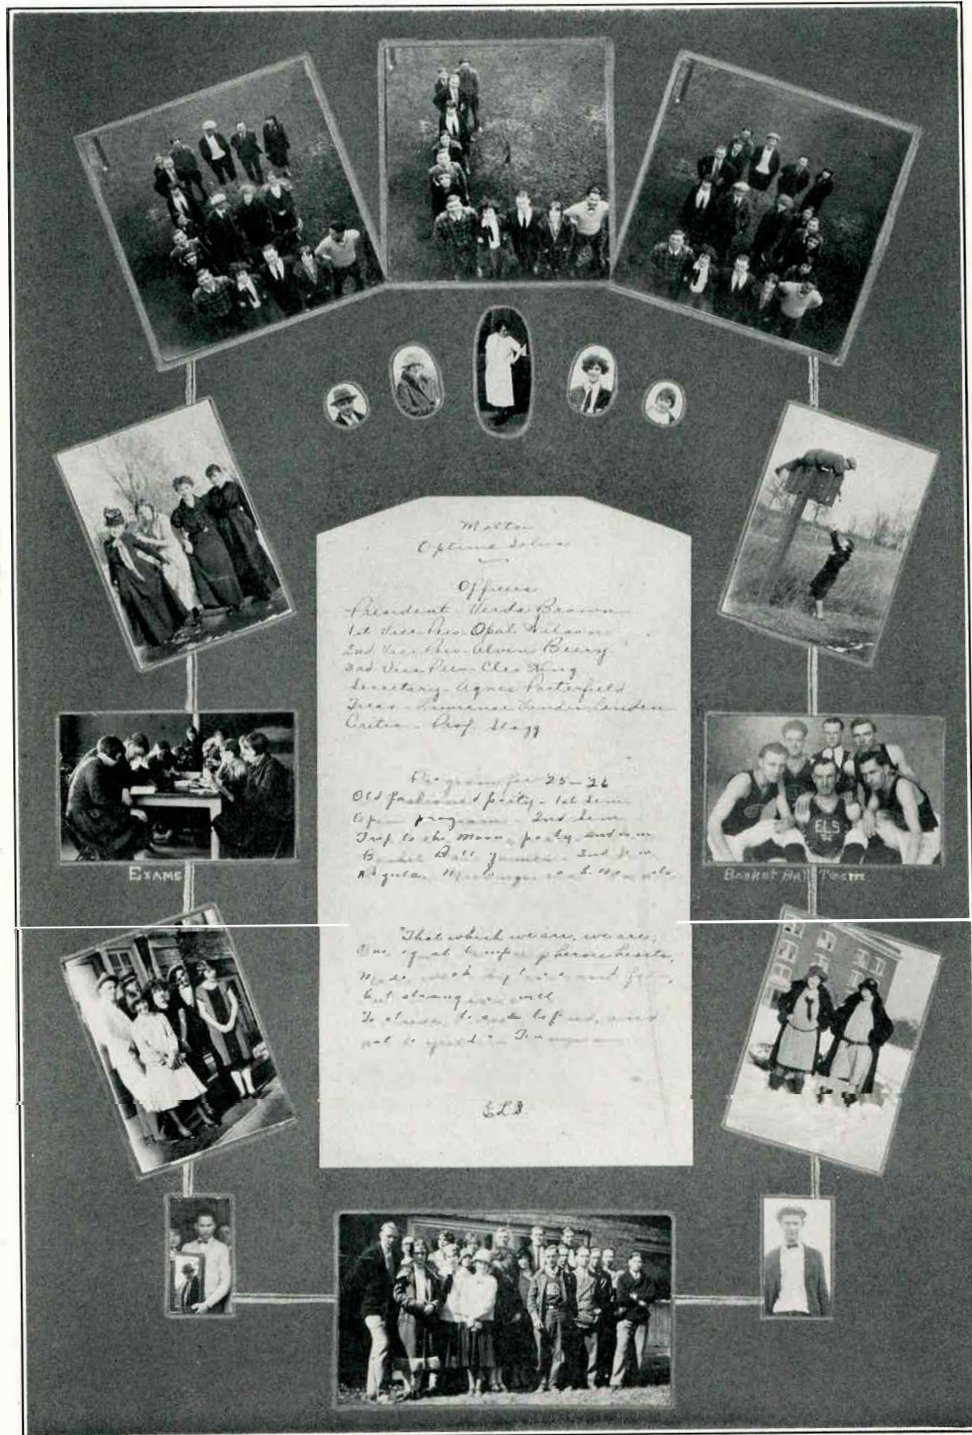 Motto
Optime
Officers
President - Verda Brown
1st Vice Pres - Opal
2nd Vice Pres - Alven Berry
3rd Vice Pres - Cleo King
Secretary - Agnes Porterfield
Treas - Lawrence
Critic - Prof. Slagg
Program for 25-26
Old fashioned party - 1st Sem
Open program - 2nd Sem
Trip to the Moon, party, 2nd sem
Basket Ball games - 2nd Sem
Regular
"That which we are, we are;
One equal temper of heroic hearts,
Made weak by time and fate,
but strong in will
To strive, to seek, to find, and
not to yield" - Tennyson
ELS
Exams
ELS
Basket Ball Team